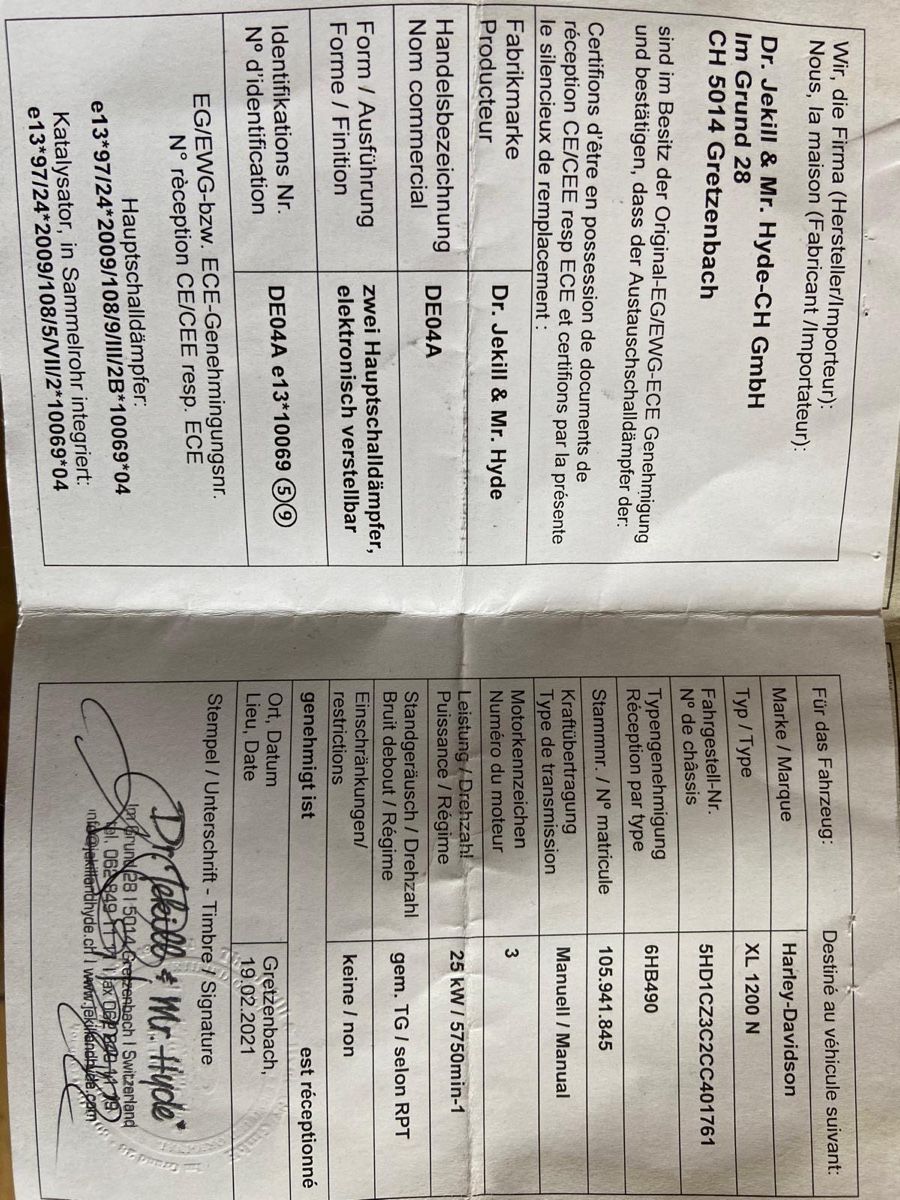 Wir, die Firma (Hersteller/Importeur):
Nous, la maison (Fabricant /Importateur):
Dr. Jekill & Mr. Hyde-CH GmbH
Im Grund 28
CH 5014 Gretzenbach
sind im Besitz der Original-EG/EWG-ECE Genehmigung
und bestätigen, dass der Austauschschalldämpfer der:
Certifions d'être en possession de documents de
réception CE/CEE resp ECE et certifions par la présente
le silencieux de remplacement :
Fabrikmarke
Producteur
Dr. Jekill & Mr. Hyde
Handelsbezeichnung
Nom commercial
DE04A
Form / Ausführung
Forme / Finition
zwei Hauptschalldämpfer,
elektronisch verstellbar
Identifikations Nr.
N° d'identification
DE04A e13*10069 ⑤⑨
EG/EWG-bzw. ECE-Genehmigungsnr.
N° rèception CE/CEE resp. ECE
Hauptschalldämpfer:
e13*97/24*2009/108/9/III/2B*10069*04
Katalysator, in Sammelrohr integriert:
e13*97/24*2009/108/5/VII/2*10069*04
Für das Fahrzeug: Destiné au véhicule suivant:
Marke / Marque Harley-Davidson
Typ / Type XL 1200 N
Fahrgestell-Nr.
N° de châssis
5HD1CZ3C2CC401761
Typengenehmigung
Réception par type
6HB490
Stammnr. / N° matricule 105.941.845
Kraftübertragung
Type de transmission
Manuell / Manual
Motorkennzeichen
Numéro du moteur
3
Leistung / Drehzahl
Puissance / Régime
25 kW / 5750min-1
Standgeräusch / Drehzahl
Bruit debout / Régime
gem. TG / selon RPT
Einschränkungen/
restrictions
keine / non
genehmigt ist est réceptionné
Ort, Datum
Lieu, Date
Gretzenbach,
19.02.2021
Stempel / Unterschrift - Timbre / Signature
Dr. Jekill & Mr. Hyde
Im Grund 28 I 5014 Gretzenbach I Switzerland
info@jekillandhyde.ch I www.jekillandhyde.com